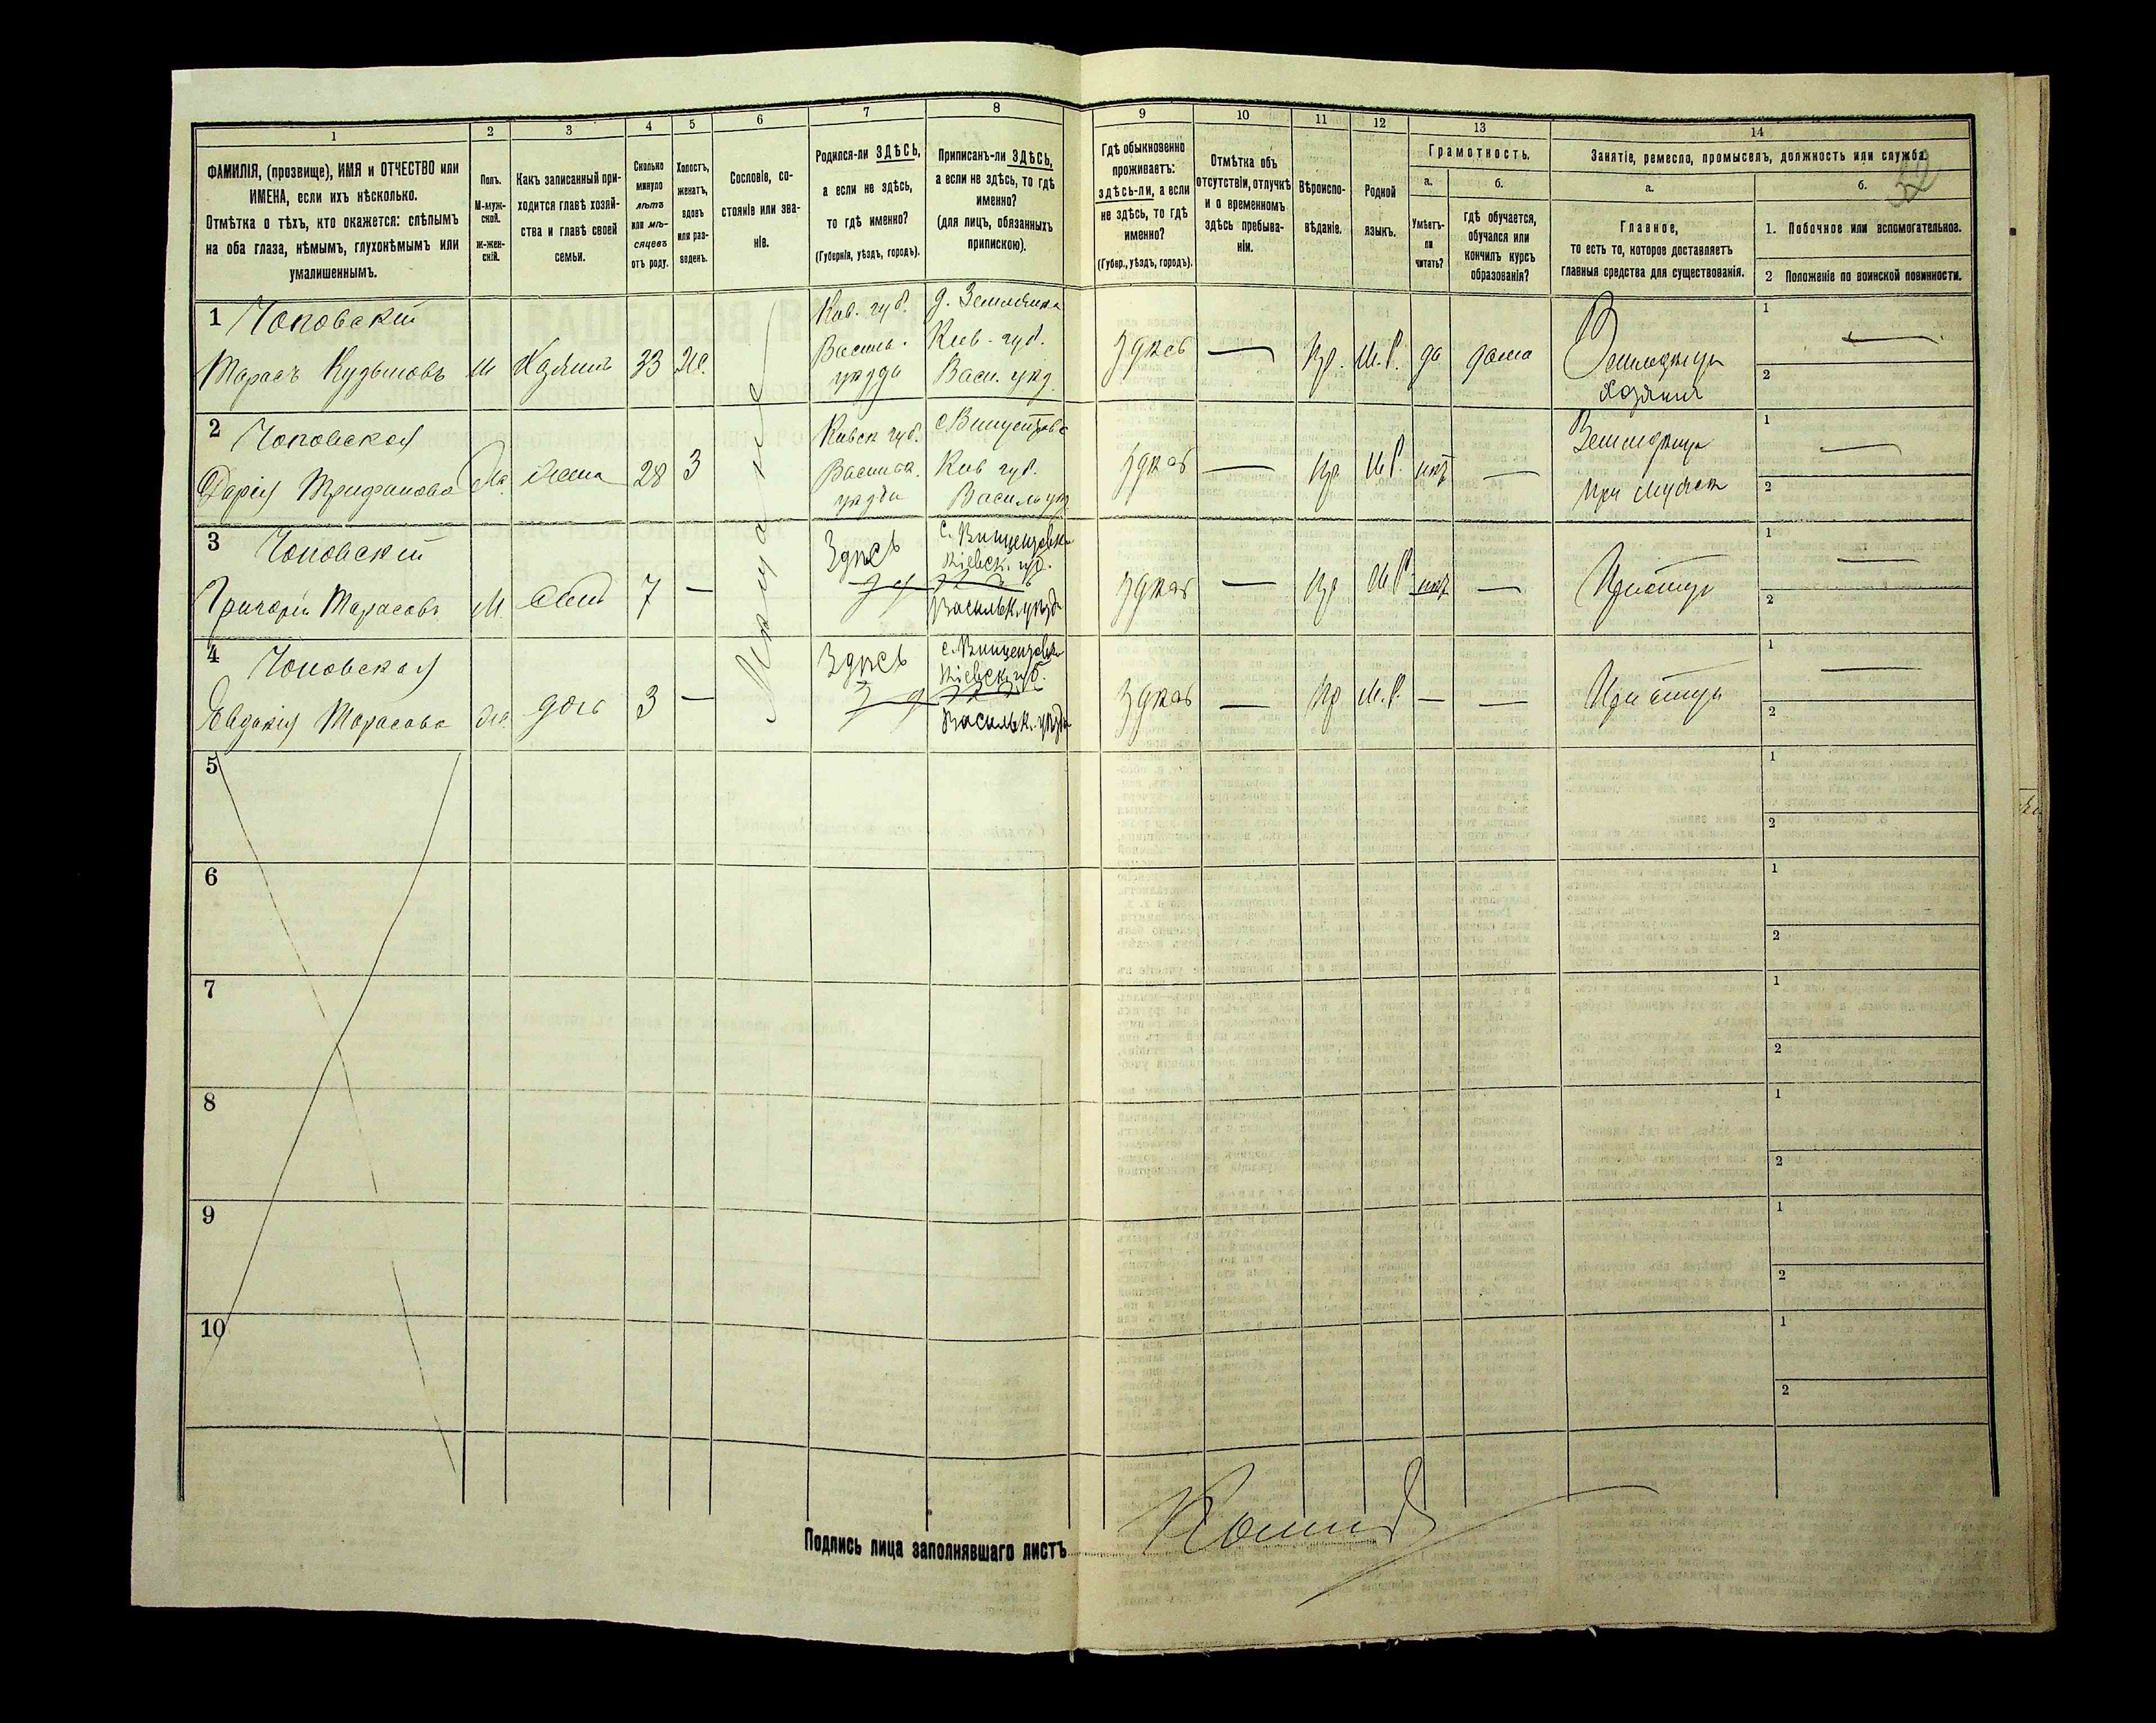 1
2
3
4
5
6
7
8
9
10
11
12
13
14
ФАМИЛІЯ, (прозвище), ИМЯ и ОТЧЕСТВО или
ИМЕНА, если ихъ нѣсколько.
Отмѣтка о тѣхъ, кто окажется: слѣпымъ
на оба глаза, нѣмымъ, глухонѣмымъ или
умалишеннымъ.
Полъ.
М-муж-
ской.
ж-жен-
скій.
Какъ записанный при-
ходится главѣ хозяй-
ства и главѣ своей
семьи.
Сколько
минуло
лѣтъ
или мѣ-
сяцевъ
отъ роду.
Холостъ,
женатъ,
вдовъ
или раз-
веденъ.
Сословіе, со-
стояніе или зва-
ніе.
Родился-ли ЗДѢСЬ,
а если не здѣсь,
то гдѣ именно?
(Губернія, уѣздъ, городъ).
Приписанъ-ли ЗДѢСЬ,
а если не здѣсь, то гдѣ
именно?
(для лицъ, обязанныхъ
припискою).
Гдѣ обыкновенно
проживаетъ:
здѣсь-ли, а если
не здѣсь, то гдѣ
именно?
(Губер., уѣздъ, городъ).
Отмѣтка объ
отсутствіи, отлучкѣ
и о временномъ
здѣсь пребыва-
ніи.
Вѣроиспо-
вѣданіе.
Родной
языкъ.
Грамотность.
а.
Умѣетъ-
ли
читать?
б.
гдѣ обучается,
обучался или
кончилъ курсъ
образованія?
Занятіе, ремесло, промыселъ, должность или служба.
а.
Главное,
то есть то, которое доставляетъ
главныя средства для существованія.
б.
1. Побочное или вспомогательное.
2 Положеніе по воинской повинности.
1 Чоповскій
Тарасъ Кузьмовъ
м
Хазяинъ
33
Ж.
Кив. губ.
Василь.
уѣзда
Киев. губ.
Васи. уѣз.
здѣсь
—
Пр.
М.Р.
да
дома
хозяинъ
1 —
2
2 Чоповская
Дарія Трифонова
Ж.
жена
28
З
Киевск губ.
уѣзда
Киев губ.
здѣсь
—
Пр
М.Р.
нѣт
—
1 —
2
3 Чоповскій
Григорій Тарасовъ
М.
сынъ
7
—
Здѣсь
с. Винцентовки
Кіевск. губ.
Васильк. уѣзда
здѣсь
—
Пр
М.Р.
нѣт
—
При отцѣ
1 —
2
4 Чоповская
Евдокія Тарасова
Ж.
дочь
3
—
Здѣсь
с. Винцентовки
Кіевск. губ.
Васильк. уѣзда
здѣсь
—
Пр
М.Р.
—
—
При отцѣ
1 —
2
5
1
2
6
1
2
7
1
2
8
1
2
9
1
2
10
1
2
Подпись лица заполнявшаго листъ